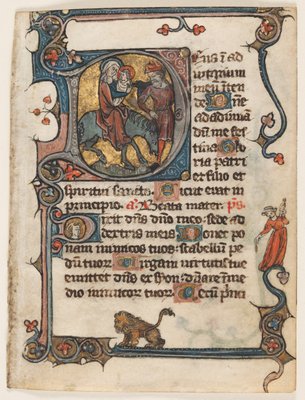 Deus ĩ ad
iutorium
meũ ĩten
de. Dñe
ad adiuuã
dũ me fes
tina. Glo
ria patri
et filio et
spiritui sancto. Sicut erat in
principio. a. Beata mater. ps.
Dixit dñs dño meo: sede ad
dextris meis. Donec po
nam inimicos tuos: scabellũ pe
dum tuor. Uirgam uirtutis tue
emittet dñs ex syon: dñare ĩ me
dio inimicor tuor. Tecũ prĩci